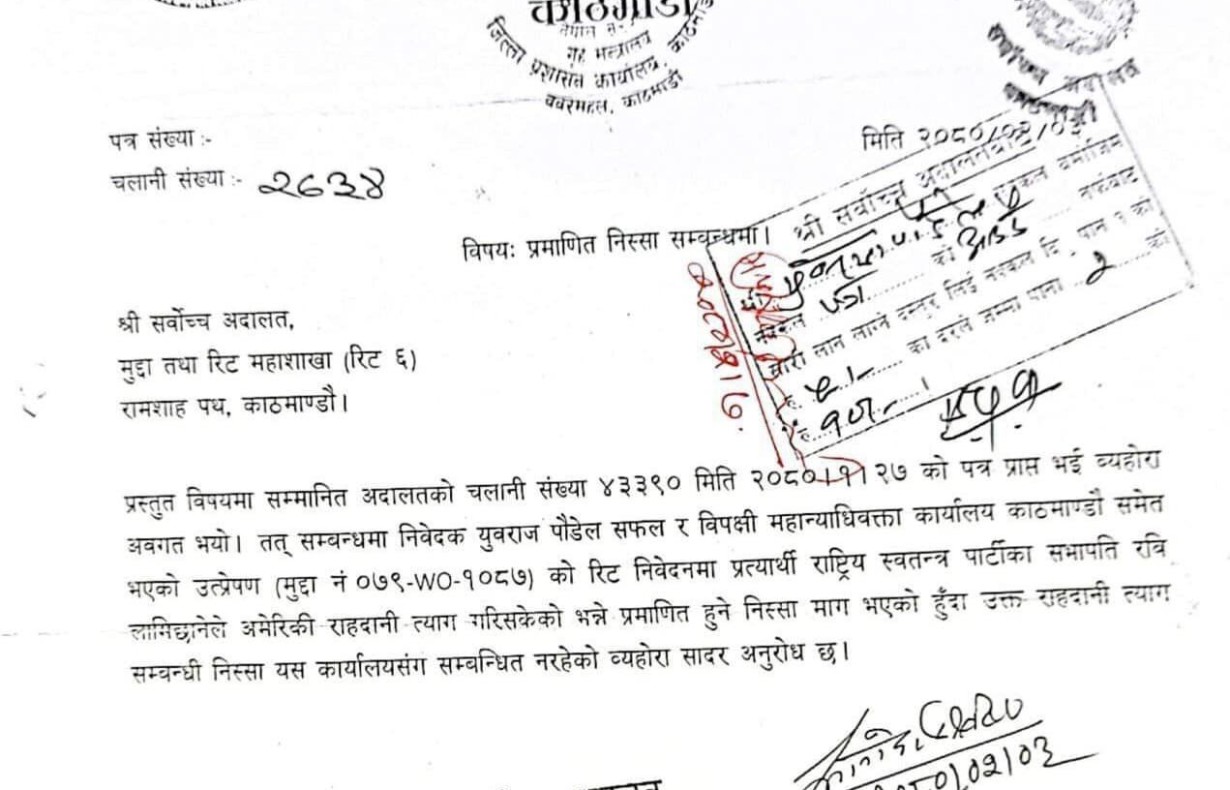 काठमाडौं
गृह मन्त्रालय
जिल्ला प्रशासन कार्यालय, काठमाडौं
बबरमहल, काठमाडौं
सर्वोच्च अदालत
पत्र संख्या :-
मिति २०८०/०२/०३
चलानी संख्या :- २६३४
विषय: प्रमाणित निस्सा सम्बन्धमा।
श्री सर्वोच्च अदालतबाट
नक्कल बमोजिम
को
नक्कल
सारी लान लाग्ने दस्तुर लिई नक्कल दि
का दरले जम्मा पाना २
श्री सर्वोच्च अदालत,
मुद्दा तथा रिट महाशाखा (रिट ६)
रामशाह पथ, काठमाण्डौ।
प्रस्तुत विषयमा सम्मानित अदालतको चलानी संख्या ४३३९० मिति २०८०।१।२७ को पत्र प्राप्त भई व्यहोरा
अवगत भयो। तत् सम्बन्धमा निवेदक युवराज पौडेल सफल र विपक्षी महान्याधिवक्ता कार्यालय काठमाण्डौ समेत
भएको उत्प्रेषण (मुद्दा नं ०७९-WO-१०८७) को रिट निवेदनमा प्रत्यार्थी राष्ट्रिय स्वतन्त्र पार्टीका सभापति रवि
लामिछानेले अमेरिकी राहदानी त्याग गरिसकेको भन्ने प्रमाणित हुने निस्सा माग भएको हुँदा उक्त राहदानी त्याग
सम्बन्धी निस्सा यस कार्यालयसंग सम्बन्धित नरहेको व्यहोरा सादर अनुरोध छ।